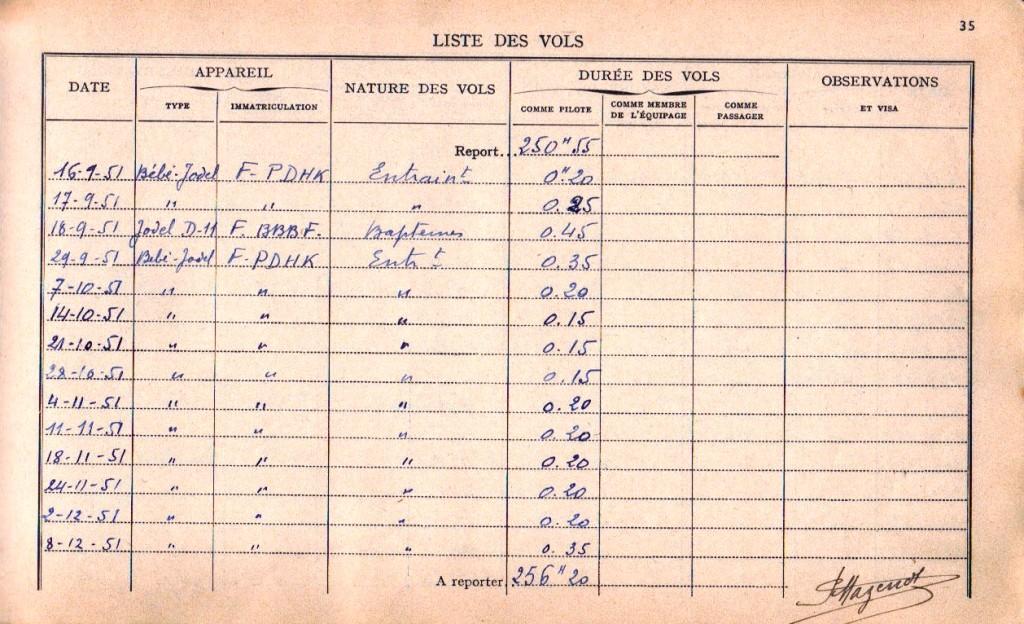 35
LISTE DES VOLS
DATE APPAREIL NATURE DES VOLS DURÉE DES VOLS OBSERVATIONS ET VISA
TYPE IMMATRICULATION COMME PILOTE COMME MEMBRE DE L'ÉQUIPAGE COMME PASSAGER
Report... 250"55
16-9-51 Bébé-Jodel F-PDHK Entraint 0"20
17-9-51 " " " 0.25
18-9-51 Jodel D-11 F.BBBF. Baptemes 0.45
29-9-51 Bébé-Jodel F-PDHK Entrt 0.35
7-10-51 " " " 0.20
14-10-51 " " " 0.15
21-10-51 " " " 0.15
28-10-51 " " " 0.15
4-11-51 " " " 0.20
11-11-51 " " " 0.20
18-11-51 " " " 0.20
24-11-51 " " " 0.20
2-12-51 " " " 0.20
8-12-51 " " " 0.35
A reporter. 256"20